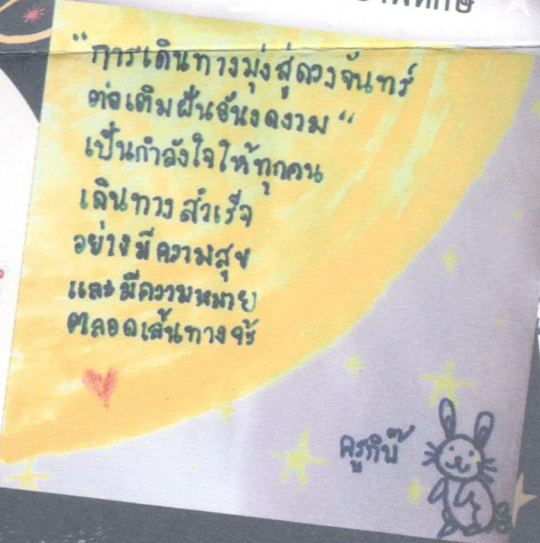 "การเดินทางมุ่งสู่ดวงจันทร์
ต่อเติมฝันอันงดงาม"
เป็นกำลังใจให้ทุกคน
เดินทางสำเร็จ
อย่างมีความสุข
และมีความหมาย
ตลอดเส้นทางจ้ะ
ครูกิ๊บ